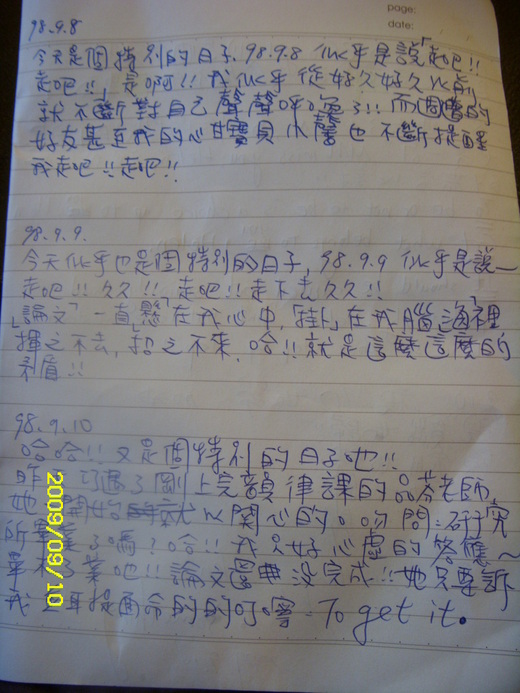 page:
date:
98.9.8
今天是個特別的日子,98.9.8 似乎是說「走吧!!
走吧!!」是啊!! 我似乎從好久好久以前
就不斷對自己聲聲呼喚了!! 而週遭的
好友甚至我的心甘寶貝小馨也不斷提醒
我走吧!!走吧!!
98.9.9.
今天似乎也是個特別的日子, 98.9.9 似乎是說—
走吧!!久久!! 走吧!!走下去久久!!
「論文」一直「懸」在我心中,「掛」在我腦海裡
揮之不去, 招之不來, 哈!! 就是這麼這麼的
矛盾!!
98.9.10
哈哈!! 又是個特別的日子吔!!
昨 巧遇了剛上完韻律課的品芬老師,
她 開始 以關心的口吻問:研究
所畢業了嗎?哈!! 我只好心虛的答應~
畢 業吧!! 論文 沒完成!! 她只要訴
我 耳提面命的的叮嚀-To get it.
2009/09/10